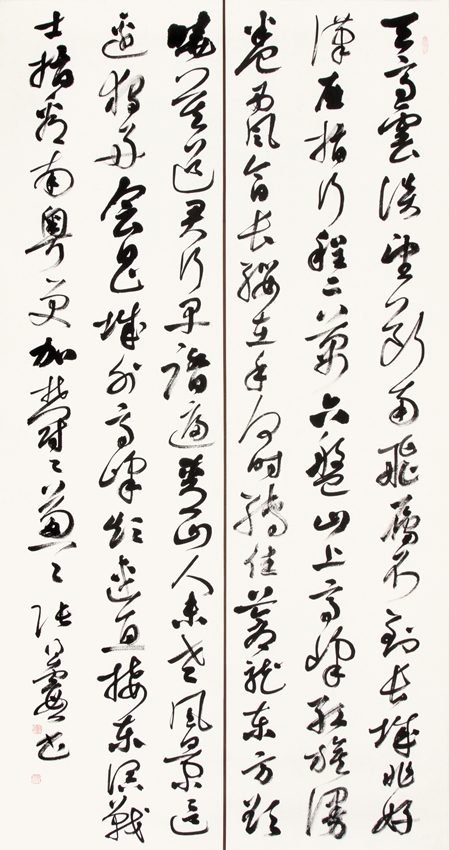 天高雲淡望斷南飛雁不到長城非好
漢屈指行程二萬六盤山上高峰紅旗漫
卷西風今日長纓在手何時縛住蒼龍東方欲
曉莫道君行早踏遍青山人未老風景這
邊獨好會昌城外高峰顛連直接東溟戰
士指看南粵更加鬱々蔥々 張 書